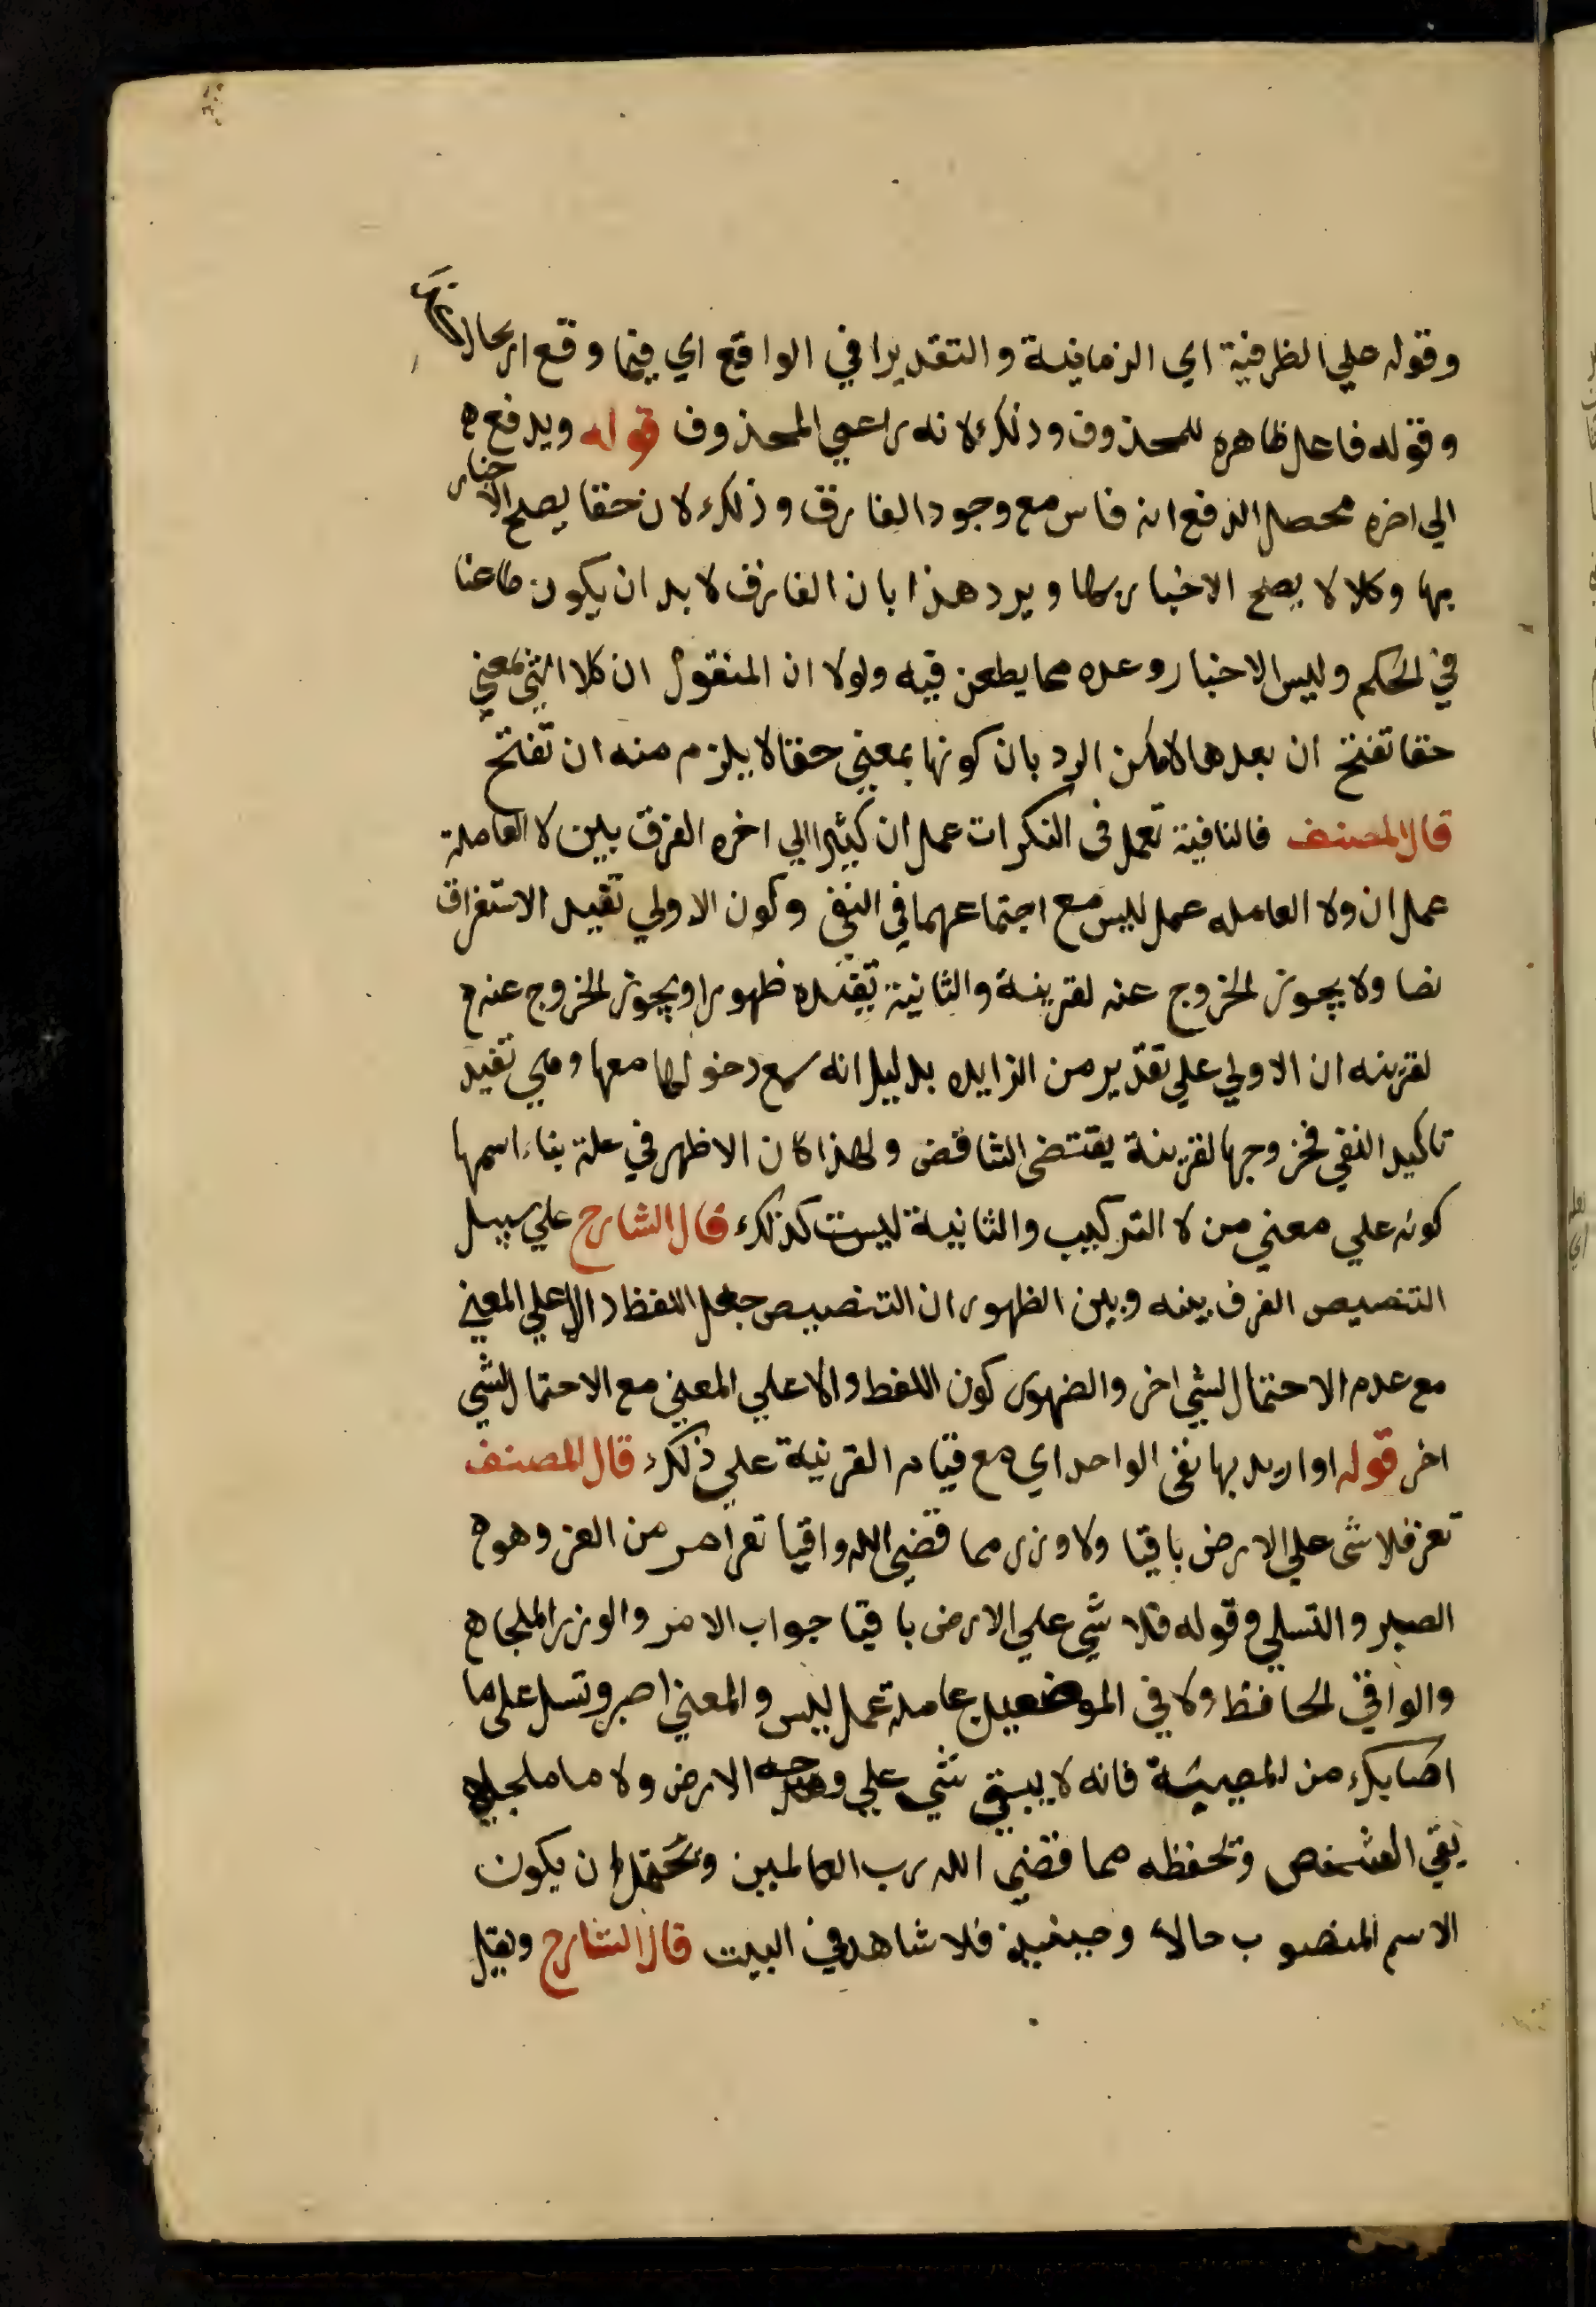 وقوله علي الظرفية اي الزمانية والتقديرا في الواقع اي فيما وقع ارتحال
وقوله فاعل ظاهره للمحذوف وذلك لانه راعي المحذوف قوله ويدفع ه
الي اخره محصل الدفع انه قاس مع وجود الفارق وذلك لان حقا يصلح الاخبار
بها وكلا لا يصلح الاخبار بها ويرد هذا بان الفارق لا بد ان يكون طاعنا
في الحكم وليس الاخبار وعدمه مما يطعن فيه ولولا ان المنقول ان كلا التي بمعني
حقا تفتح ان بعدها لامكن الرد بان كونها بمعني حقا لا يلزم منه ان تفتح
قال المصنف فالنافية تعمل في النكرات عمل ان كثيرا الي اخره الفرق بين لا العاملة
عمل ان ولا العامله عمل ليس مع اجتماعهما في النفي وكون الاولي تفيد الاستغراق
نصا ولا يجوز الخروج عنه لقرينة والثانية تفيده ظهورا ويجوز الخروج عنه م
لقرينه ان الاولي علي تقدير من الزايده بدليل انه سمع دخولها معها وهي تفيد
تاكيد النفي فخروجها لقرينة يقتضي التناقض ولهذا كان الاظهر في علة بناء اسمها
كونه علي معني من لا التركيب والثانية ليست كذلك قال الشارح علي سبيل
التنصيص الفرق بينه وبين الظهور ان التنصيص جعل اللفظ دالا علي المعني
مع عدم الاحتمال لشي اخر والضهور كون اللفظ دالا علي المعني مع الاحتمال لشي
اخر قوله او اريد بها نفي الواحد اي مع قيام القرنية علي ذلك قال المصنف
تعز فلا شي علي الارض باقيا ولا وزر مما قضي الله واقيا تعز امر من العز وهو ح
الصبر والتسلي وقوله فلا شي علي الارض باقيا جواب الامر والوزر الملجا ه
والواقي الحافظ ولا في الموضعين عاملة عمل ليس والمعني اصبر وتسل علي ما
اصابك من المصيبة فانه لا يبقي شي علي وجه الارض ولا ما ملجا
يقي الشخص وتحفظه مما قضي الله رب العالمين وتحتمل ان يكون
الاسم المنصوب حالا وحينيذ فلا شاهد في البيت قال الشارح وقيل